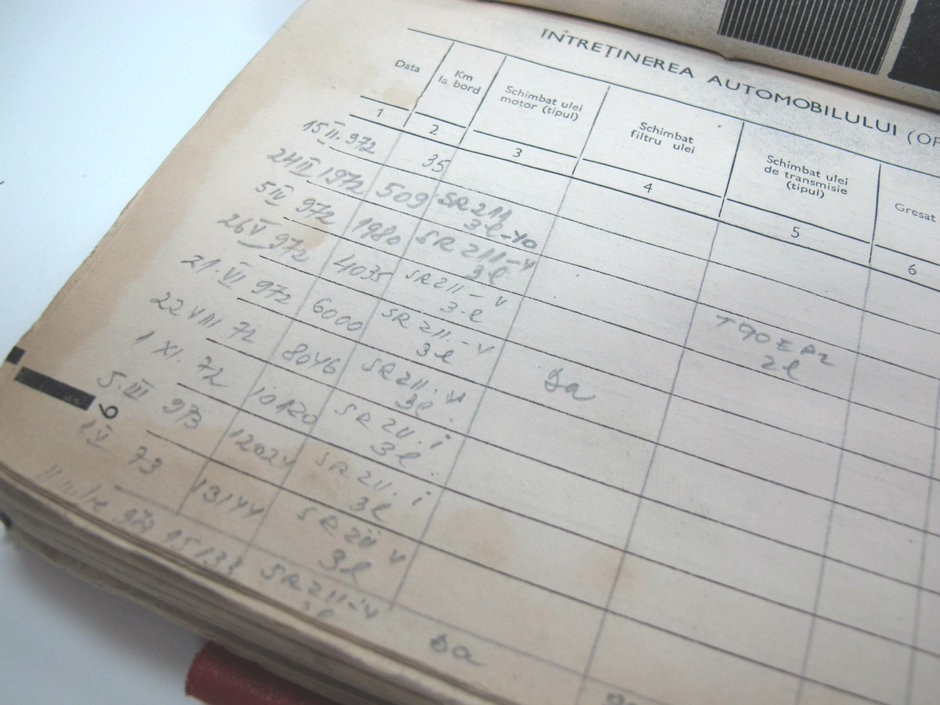 INTREȚINEREA AUTOMOBILULUI (OP
Data
Km
la bord
Schimbat ulei
motor (tipul)
Schimbat
filtru ulei
Schimbat ulei
de transmisie
(tipul)
Gresat
1 2 3 4 5 6
15 II. 972 35
24 III 1972 509 SR 211
3l
5 IV 972 1980 SR 211-v
3l
26 V 972 4035 SR 211-v
3-l
T90EP2
2l
21. VI 972 6000 SR 211-v
3l
22 VIII 72 8046 SR 211. v Da
3l
1 XI. 72 10120 SR 211. i
3l.
5. III 973 12024 SR 211. i
3l
1. V 73 13144 SR 211 v
3l
15133 SR 211-v
3l
Da
6